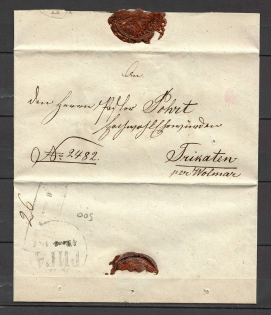 An
den Herrn Pastor Pohrt
Hochwohlehrwürden
No 2482.
Trikaten
per Wolmar
26
500
РИГА